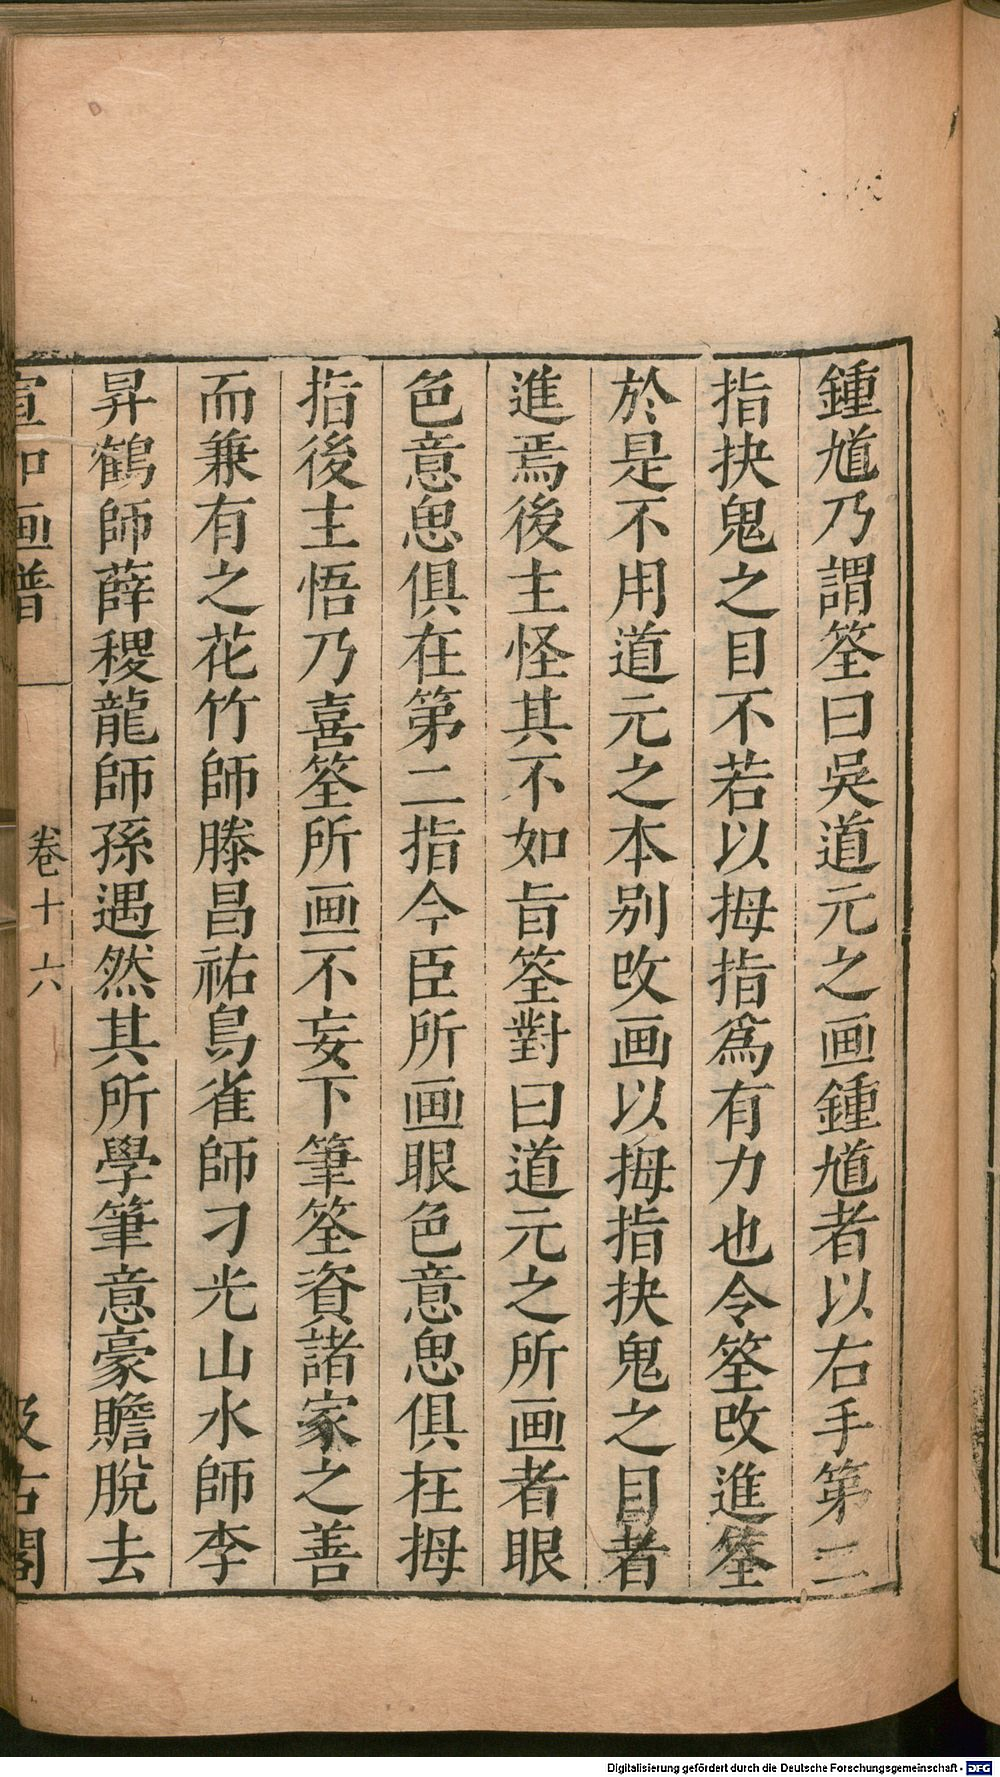 鍾馗乃謂筌曰吳道元之画鍾馗者以右手第二
指抉鬼之目不若以拇指爲有力也令筌改進筌
於是不用道元之本别改画以拇指抉鬼之目者
進焉後主怪其不如旨筌對曰道元之所画者眼
色意思俱在第二指今臣所画眼色意思俱在拇
指後主悟乃喜筌所画不妄下筆筌資諸家之善
而兼有之花竹師滕昌祐鳥雀師刁光山水師李
昇鶴師薛稷龍師孫遇然其所學筆意豪贍脫去
宣和画譜
卷十六
汲古閣
Digitalisierung gefördert durch die Deutsche Forschungsgemeinschaft - DFG